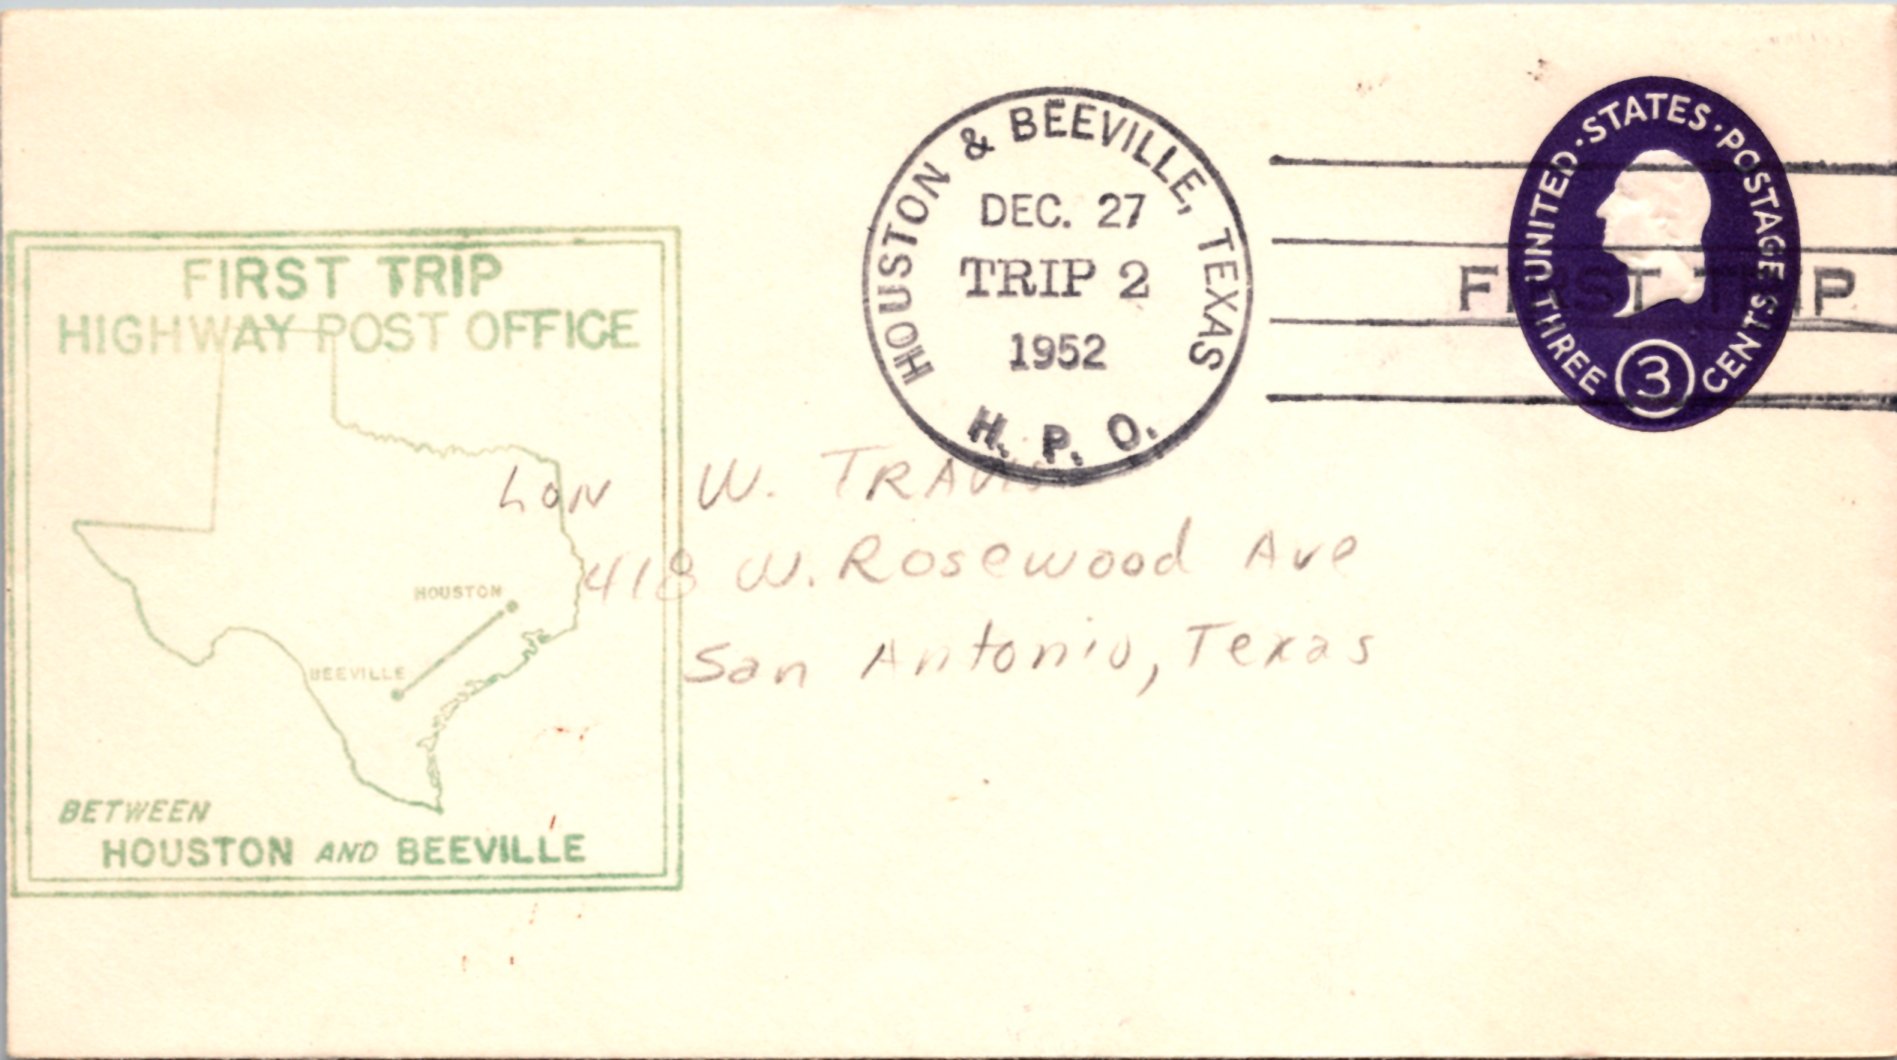 FIRST TRIP
HIGHWAY POST OFFICE
HOUSTON
BEEVILLE
BETWEEN
HOUSTON AND BEEVILLE
HOUSTON & BEEVILLE, TEXAS
DEC. 27
TRIP 2
1952
H. P. O.
FIRST TRIP
UNITED · STATES · POSTAGE
THREE 3 CENTS
Lon W. TRAVIS
418 W. Rosewood Ave
San Antonio, Texas